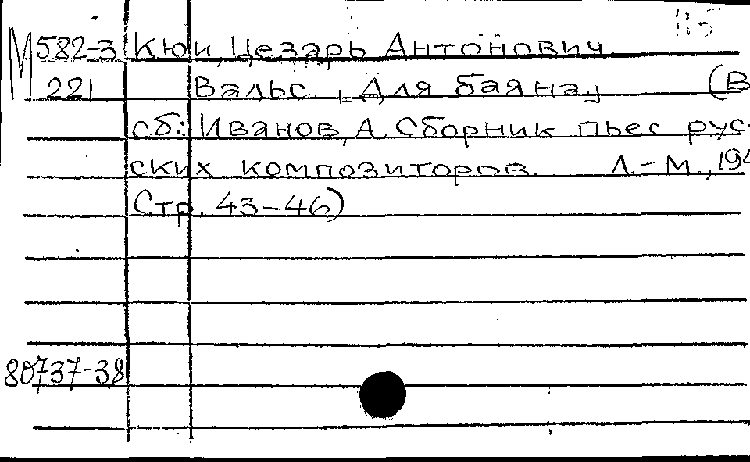 М 582-3 Кюи, Цезарь Антонович.
221 Вальс [Для баяна] (В
сб: Иванов, А. Сборник пьес рус-
ских композиторов. Л.-М., 194
Стр. 43-46)
80737-38